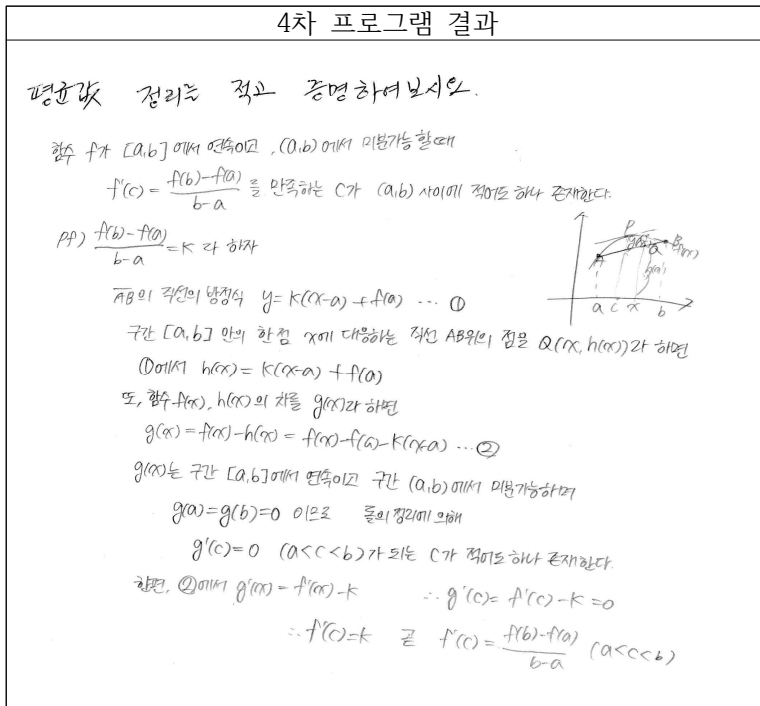 4차 프로그램 결과
평균값 정리를 적고 증명하여보시오.
함수 f가 [a,b]에서 연속이고, (a,b)에서 미분가능할때
f'(c) = \frac{f(b)-f(a)}{b-a} 를 만족하는 C가 (a,b) 사이에 적어도 하나 존재한다.
pf) \frac{f(b)-f(a)}{b-a} = K 라 하자
\overline{AB}의 직선의 방정식 y=K(x-a)+f(a) … ①
구간 [a,b] 안의 한점 x에 대응하는 직선 AB위의 점을 Q(x, h(x))라 하면
①에서 h(x) = K(x-a)+f(a)
또, 함수 f(x), h(x)의 차를 g(x)라 하면
g(x) = f(x)-h(x) = f(x)-f(a)-K(x-a) … ②
g(x)는 구간 [a,b]에서 연속이고 구간 (a,b)에서 미분가능하며
g(a)=g(b)=0 이므로 롤의 정리에 의해
g'(c)=0 (a<c<b)가 되는 C가 적어도 하나 존재한다.
한편, ②에서 g'(x) = f'(x)-K ∴ g'(c) = f'(c)-K = 0
∴ f'(c)=K 곧 f'(c) = \frac{f(b)-f(a)}{b-a} (a<c<b)
P
A
Q
B
a c x b